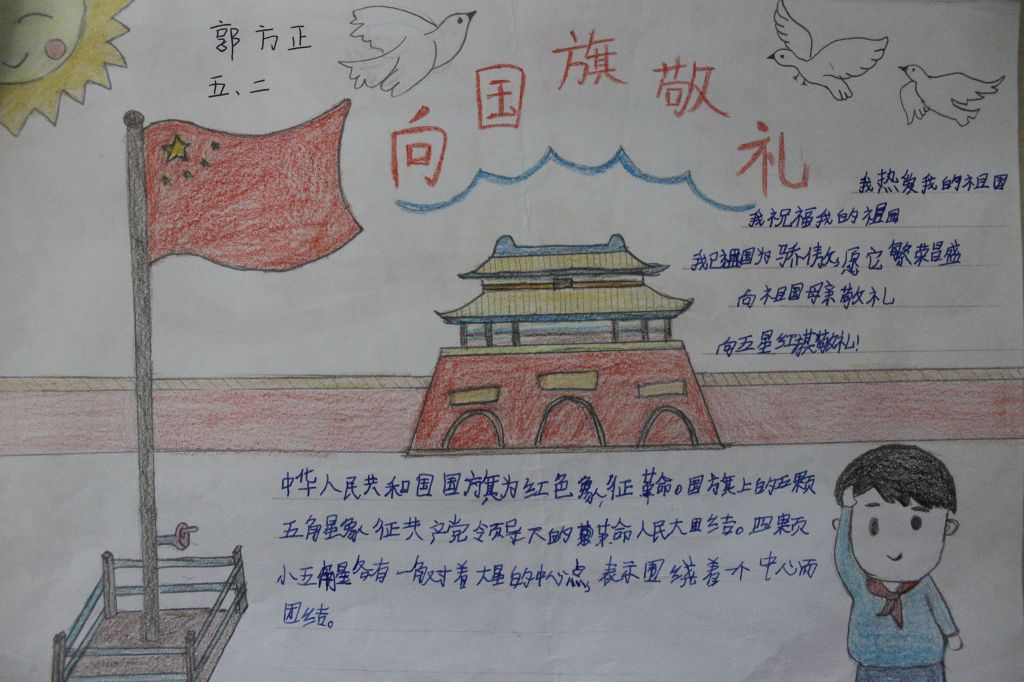 郭方正
五、二
向国旗敬礼
我热爱我的祖国
我祝福我的祖国
我以祖国为骄傲,愿它繁荣昌盛
向祖国母亲敬礼
向五星红旗敬礼!
中华人民共和国国旗为红色象征革命。国旗上的五颗
五角星象征共产党领导下的革命人民大团结。四颗
小五角星各有一角对着大星的中心点,表示围绕着一个中心而
团结。